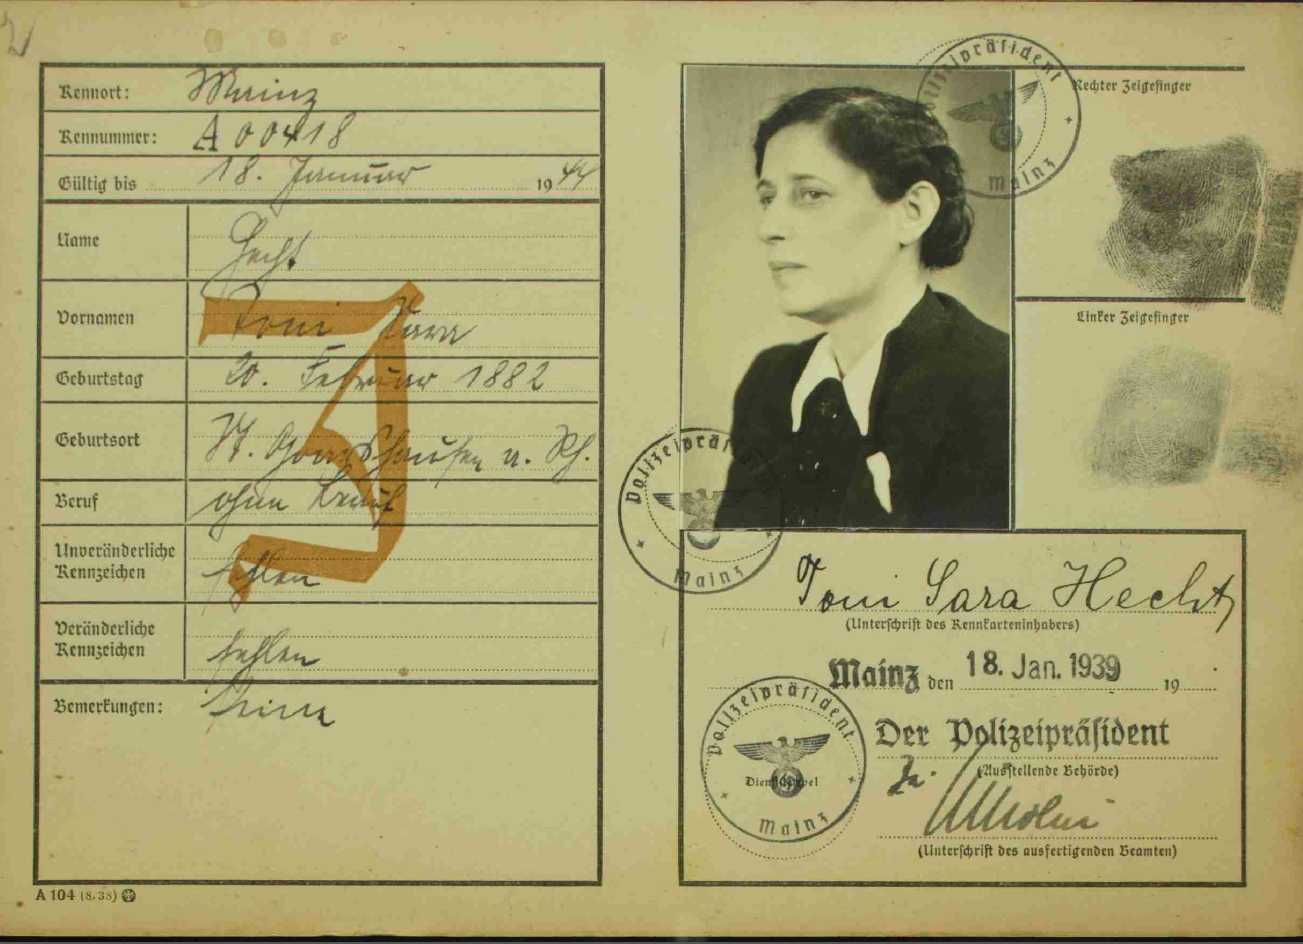 Kennort: Mainz
Kennummer: A 00418
Gültig bis 18. Januar 1944
Name Hecht
Vornamen Toni Sara
Geburtstag 20. Februar 1882
Geburtsort St. Goarshausen a. Rh.
Beruf ohne Beruf
Unveränderliche
Kennzeichen fehlen
Veränderliche
Kennzeichen fehlen
Bemerkungen: keine
J
A 104 (8. 38)
Polizeipräsident
Mainz
Rechter Zeigefinger
Linker Zeigefinger
Polizeipräsident
Mainz
Toni Sara Hecht
(Unterschrift des Kennkarteninhabers)
Mainz den 18. Jan. 1939 19
Polizeipräsident
Dienststempel
Mainz
Der Polizeipräsident
(Ausstellende Behörde)
(Unterschrift des ausfertigenden Beamten)